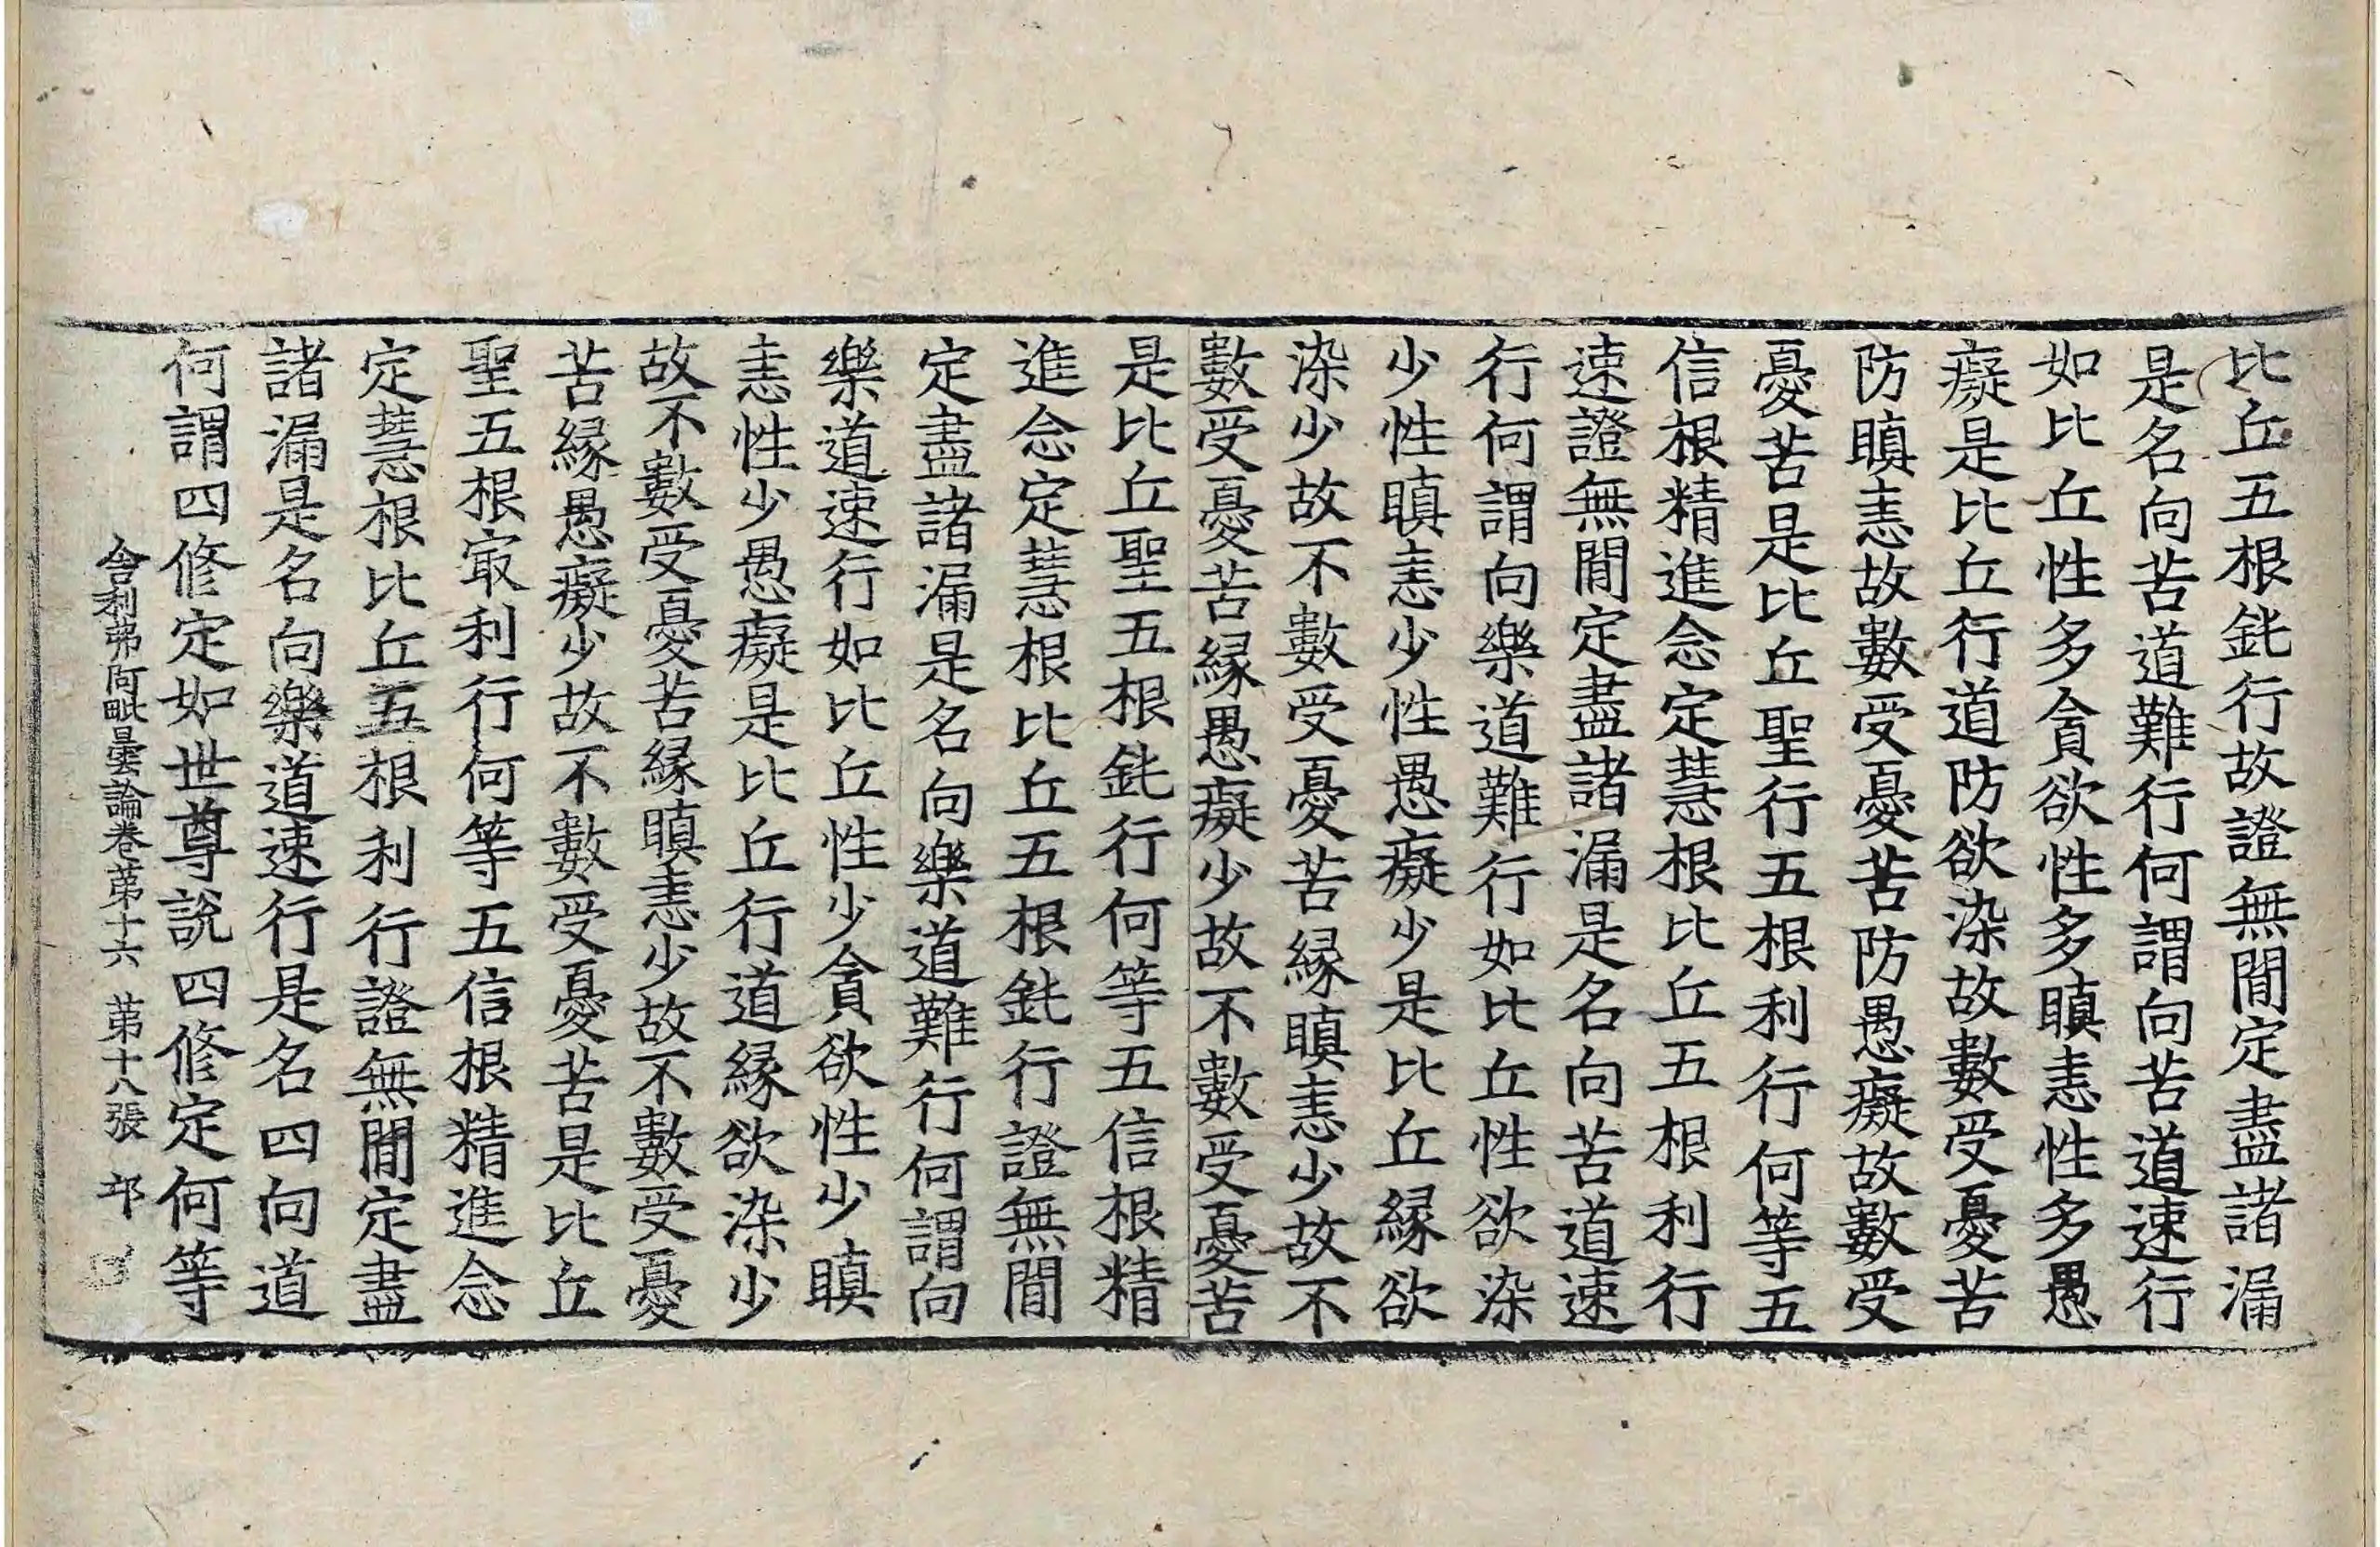 比丘五根鈍行故證無閒定盡諸漏
是名向苦道難行何謂向苦道速行
如比丘性多貪欲性多瞋恚性多愚
癡是比丘行道防欲染故數受憂苦
防瞋恚故數受憂苦防愚癡故數受
憂苦是比丘聖行五根利行何等五
信根精進念定慧根比丘五根利行
速證無閒定盡諸漏是名向苦道速
行何謂向樂道難行如比丘性欲染
少性瞋恚少性愚癡少是比丘緣欲
染少故不數受憂苦緣瞋恚少故不
數受憂苦緣愚癡少故不數受憂苦
是比丘聖五根鈍行何等五信根精
進念定慧根比丘五根鈍行證無閒
定盡諸漏是名向樂道難行何謂向
樂道速行如比丘性少貪欲性少瞋
恚性少愚癡是比丘行道緣欲染少
故不數受憂苦緣瞋恚少故不數受憂
苦緣愚癡少故不數受憂苦是比丘
聖五根㝡利行何等五信根精進念
定慧根比丘五根利行證無閒定盡
諸漏是名向樂道速行是名四向道
何謂四修定如世尊說四修定何等
舍利弗阿毗曇論卷苐十六 苐十八張 邙